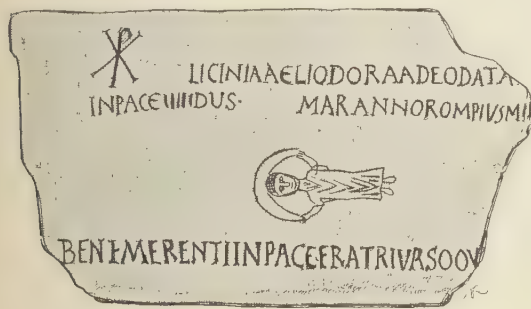 LICINIAAELIODORAADEODATA
INPACEIIIIIDUS· MARANNOROMPIVSMI
BENEMERENTIINPACEFRATRIVRSOQV